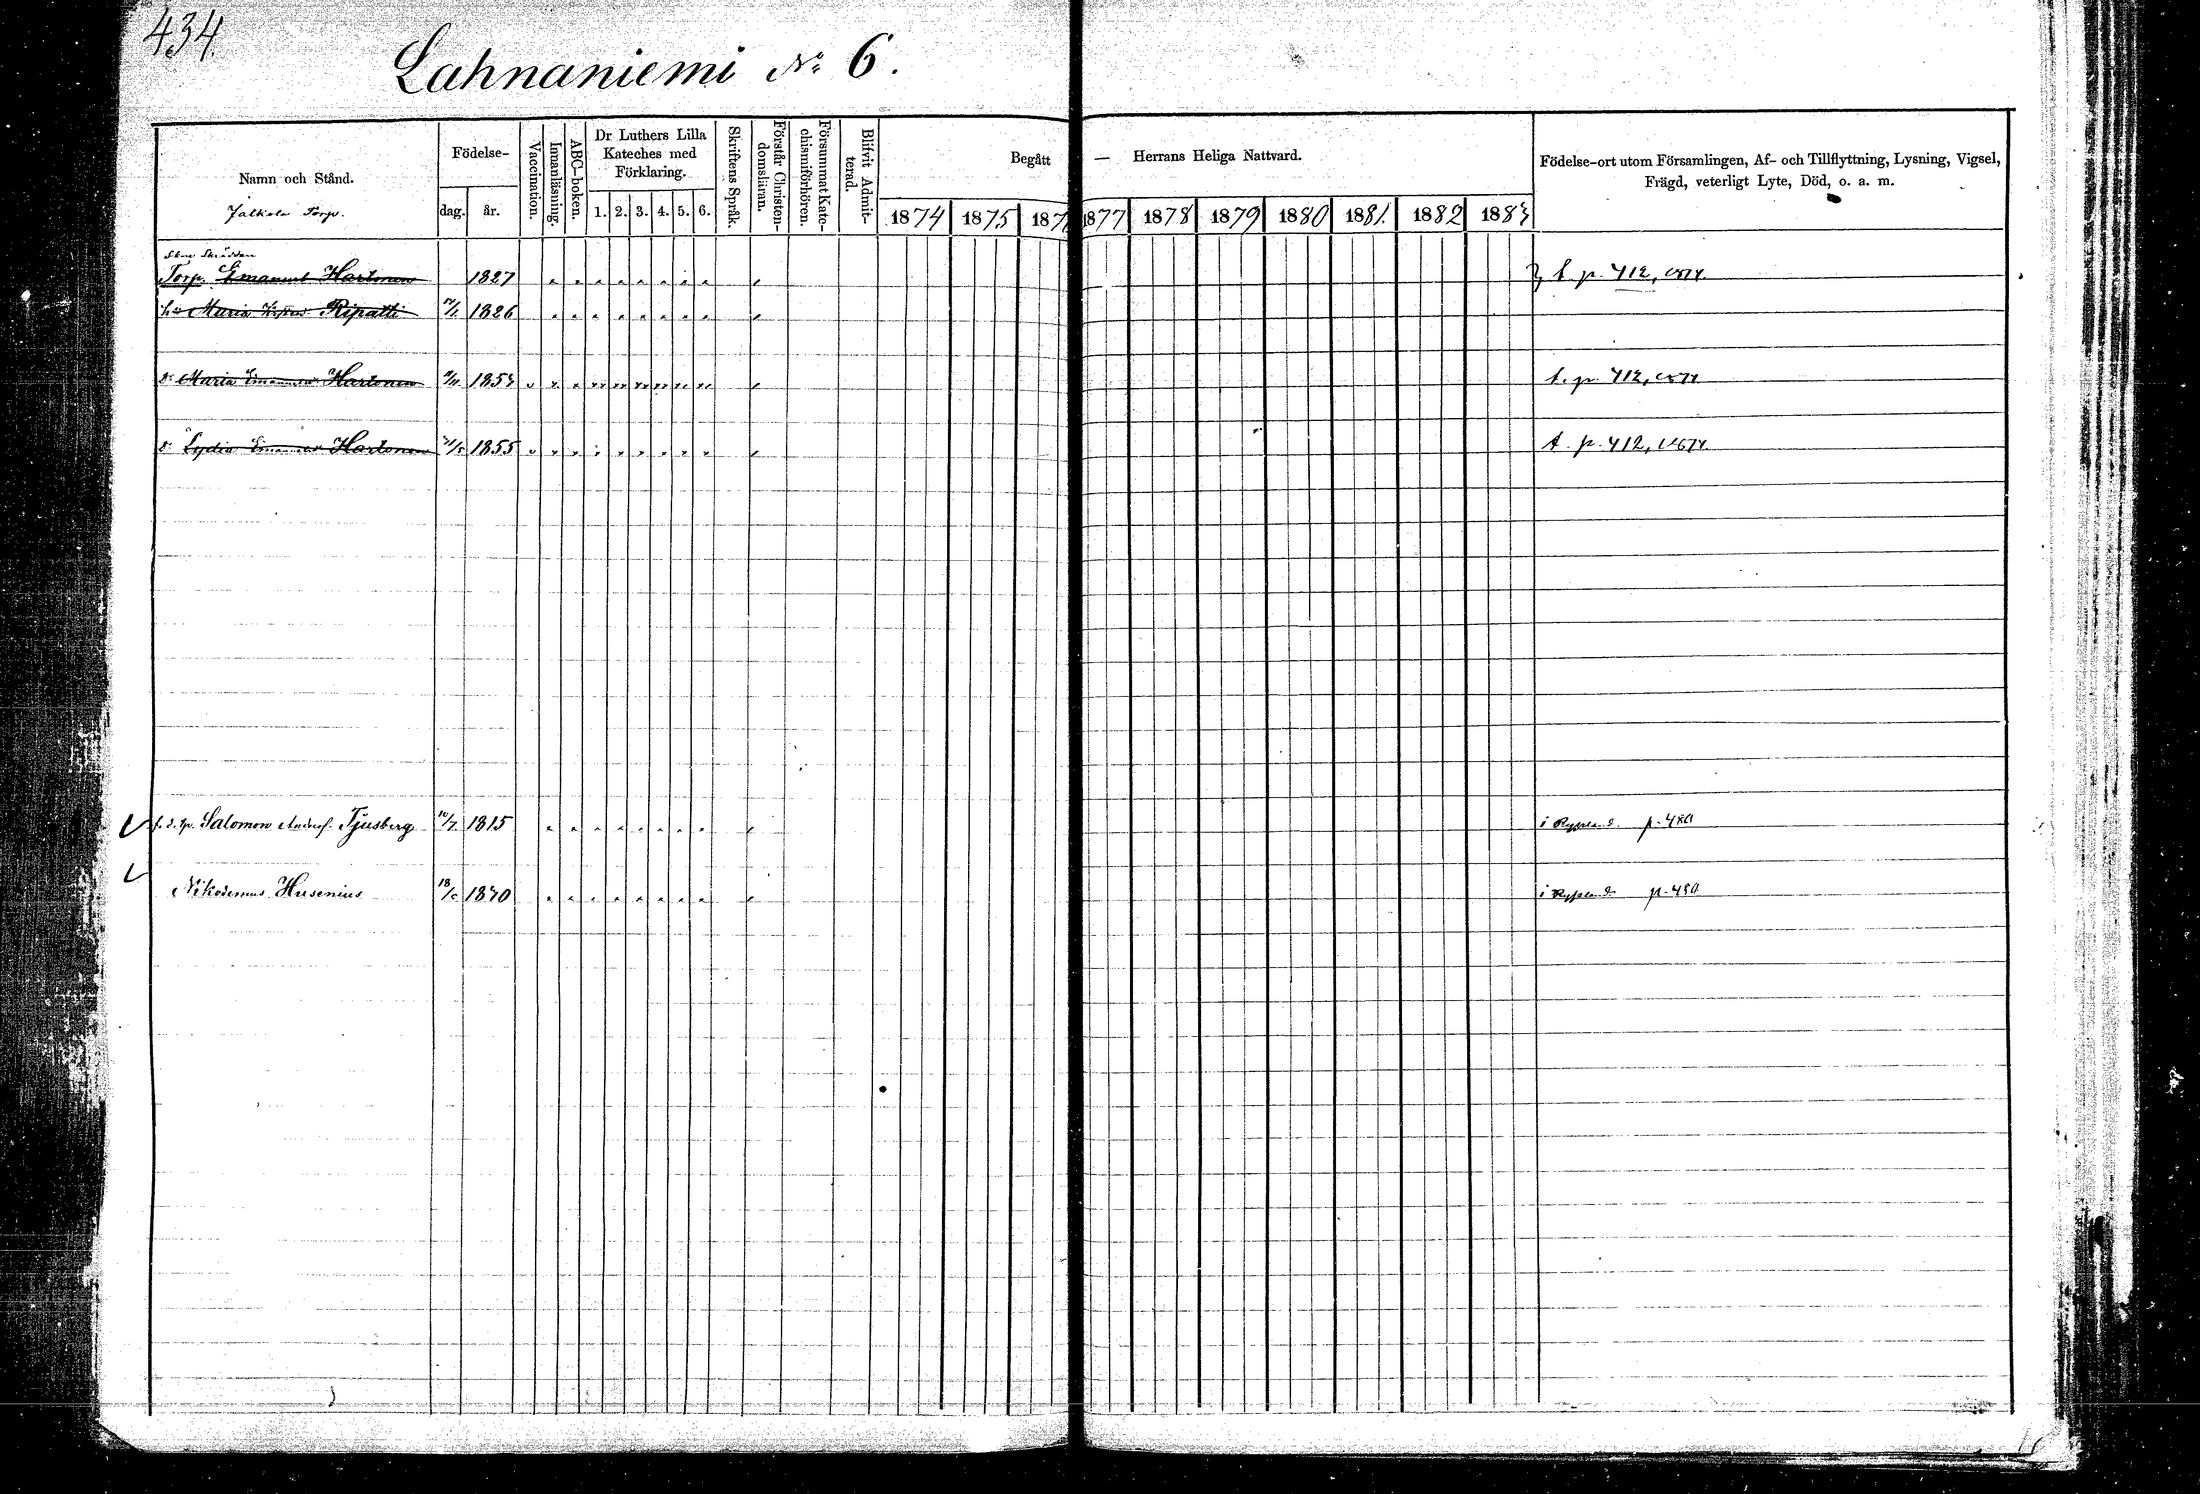 434.
Lahnaniemi No 6.
Namn och Stånd.
Jalkala Torp.
Födelse-
dag. år.
Vaccination.
Innanläsning.
ABC-boken.
Dr Luthers Lilla Kateches med Förklaring.
1. 2. 3. 4. 5. 6.
Skriftens Språk.
Förstår Christendomsläran.
Försummat Katechismiförhören.
Blifvit Admitterad.
Begått — Herrans Heliga Nattvard.
1874 1875 187 1877 1878 1879 1880 1881. 1882 1883
Födelse-ort utom Församlingen, Af- och Tillflyttning, Lysning, Vigsel,
Frägd, veterligt Lyte, Död, o. a. m.
Torp. Emanuel Hartonen 1827 p. 412,
Maria Ripatti 1826
Maria Hartonen 1853 p. 412,
Lydia Hartonen 1855 p. 412,
Salomon Tjusberg 10/7 1815 p. 480
Nikodemus Husenius 1870 p. 480